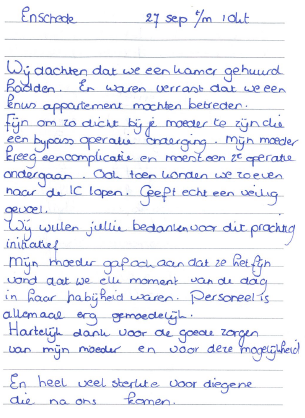 Enschede 27 sep t/m 1 Okt
Wij dachten dat we een kamer gehuurd
hadden. En waren verrast dat we een
appartement mochten betreden.
Fijn om zo dicht bij je moeder te zijn die
een bypass operatie onderging. Mijn moeder
kreeg een complicatie en moest een 2e operatie
ondergaan. Ook toen konden we zo even
naar de IC lopen. Geeft echt een veilig
gevoel.
Wij willen jullie bedanken voor dit prachtig
initiatief
Mijn moeder gaf ook aan dat ze het fijn
vond dat we elk moment van de dag
in haar nabijheid waren. Personeel is
allemaal erg gemoedelijk.
Hartelijk dank voor de goede zorgen
van mijn moeder en voor deze mogelijkheid
En heel veel sterkte voor diegene
die na ons komen.